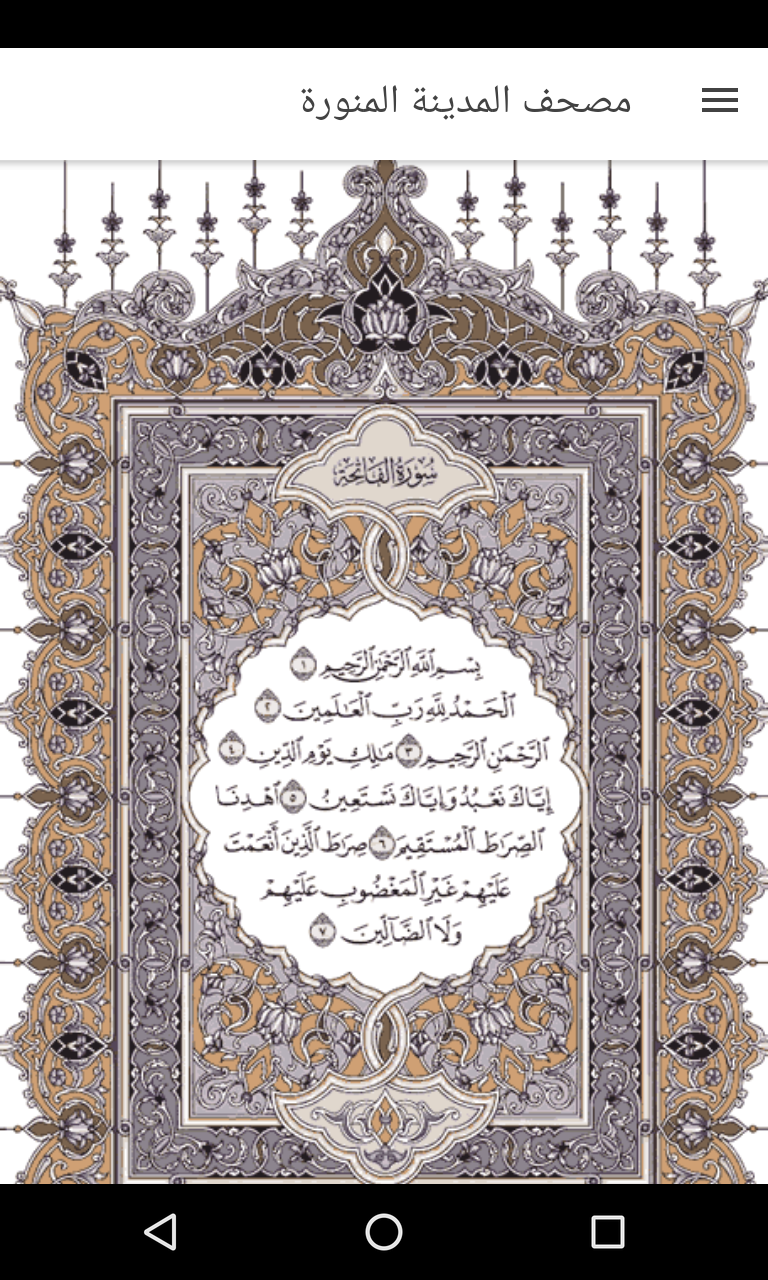 مصحف المدينة المنورة
سُورَةُ الفَاتِحَة
بِسْمِ ٱللَّهِ ٱلرَّحْمَٰنِ ٱلرَّحِيمِ ١
ٱلْحَمْدُ لِلَّهِ رَبِّ ٱلْعَٰلَمِينَ ٢
ٱلرَّحْمَٰنِ ٱلرَّحِيمِ ٣ مَٰلِكِ يَوْمِ ٱلدِّينِ ٤
إِيَّاكَ نَعْبُدُ وَإِيَّاكَ نَسْتَعِينُ ٥ ٱهْدِنَا
ٱلصِّرَٰطَ ٱلْمُسْتَقِيمَ ٦ صِرَٰطَ ٱلَّذِينَ أَنْعَمْتَ
عَلَيْهِمْ غَيْرِ ٱلْمَغْضُوبِ عَلَيْهِمْ
وَلَا ٱلضَّآلِّينَ ٧